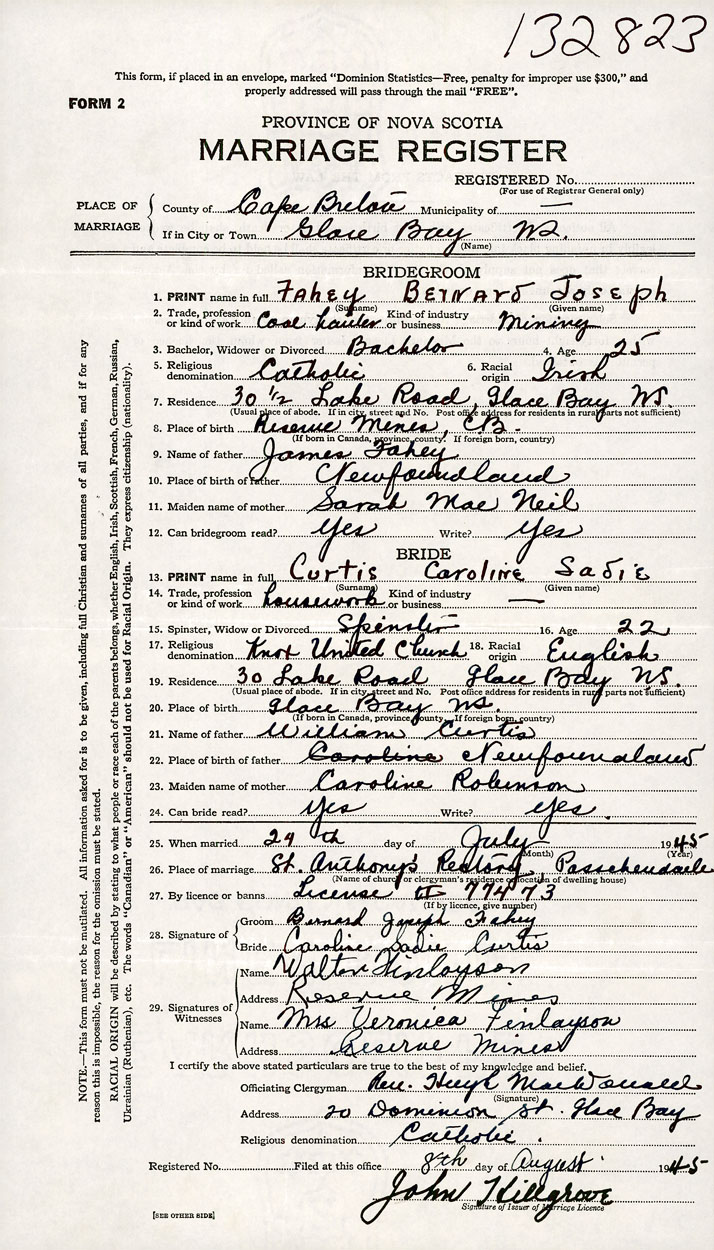 132823
This form, if placed in an envelope, marked "Dominion Statistics—Free, penalty for improper use $300," and
properly addressed will pass through the mail "FREE".
FORM 2
PROVINCE OF NOVA SCOTIA
MARRIAGE REGISTER
REGISTERED No.
(For use of Registrar General only)
PLACE OF MARRIAGE
County of Cape Breton Municipality of —
If in City or Town Glace Bay NS.
(Name)
BRIDEGROOM
1. PRINT name in full Fahey Bernard Joseph
(Surname) (Given name)
2. Trade, profession or kind of work Coal hauler Kind of industry or business Mining
3. Bachelor, Widower or Divorced Bachelor 4. Age 25
5. Religious denomination Catholic 6. Racial origin Irish
7. Residence 30 1/2 Lake Road, Glace Bay NS.
(Usual place of abode. If in city, street and No. Post office address for residents in rural parts not sufficient)
8. Place of birth Reserve Mines, C.B.
(If born in Canada, province, county. If foreign born, country)
9. Name of father James Fahey
10. Place of birth of father Newfoundland
11. Maiden name of mother Sarah Mac Neil
12. Can bridegroom read? yes Write? yes
BRIDE
13. PRINT name in full Curtis Caroline Sadie
(Surname) (Given name)
14. Trade, profession or kind of work housework Kind of industry or business —
15. Spinster, Widow or Divorced Spinster 16. Age 22
17. Religious denomination Knox United Church 18. Racial origin English
19. Residence 30 Lake Road Glace Bay NS.
(Usual place of abode. If in city, street and No. Post office address for residents in rural parts not sufficient)
20. Place of birth Glace Bay NS.
(If born in Canada, province, county. If foreign born, country)
21. Name of father William Curtis
22. Place of birth of father Caroline Newfoundland
23. Maiden name of mother Caroline Robinson
24. Can bride read? yes Write? yes.
25. When married 24th day of July 1945
(Month) (Year)
26. Place of marriage St. Anthony's Rectory, Passchendaele
(Name of church or clergyman's residence or location of dwelling house)
27. By licence or banns License 77473
(If by licence, give number)
28. Signature of
Groom Bernard Joseph Fahey
Bride Caroline Sadie Curtis
29. Signatures of Witnesses
Name Walton Finlayson
Address Reserve Mines
Name Mrs Veronica Finlayson
Address Reserve Mines
I certify the above stated particulars are true to the best of my knowledge and belief.
Officiating Clergyman Rev. Hugh MacDonald
(Signature)
Address 20 Dominion St. Glace Bay
Religious denomination Catholic.
Registered No. Filed at this office 8th day of August 1945
John Hillgrove
Signature of Issuer of Marriage Licence
[SEE OTHER SIDE]
NOTE.—This form must not be mutilated. All information asked for is to be given, including full Christian and surnames of all parties, and if for any
reason this is impossible, the reason for the omission must be stated.
RACIAL ORIGIN will be described by stating to what people or race each of the parents belongs, whether English, Irish, Scottish, French, German, Russian,
Ukrainian (Ruthenian), etc. The words "Canadian" or "American" should not be used for Racial Origin. They express citizenship (nationality).